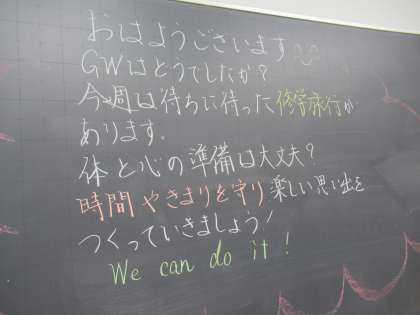 おはようございます
GWはどうでしたか?
今週は待ちに待った修学旅行が
あります.
体と心の準備は大丈夫?
時間やきまりを守り楽しい思い出を
つくっていきましょう!
We can do it!